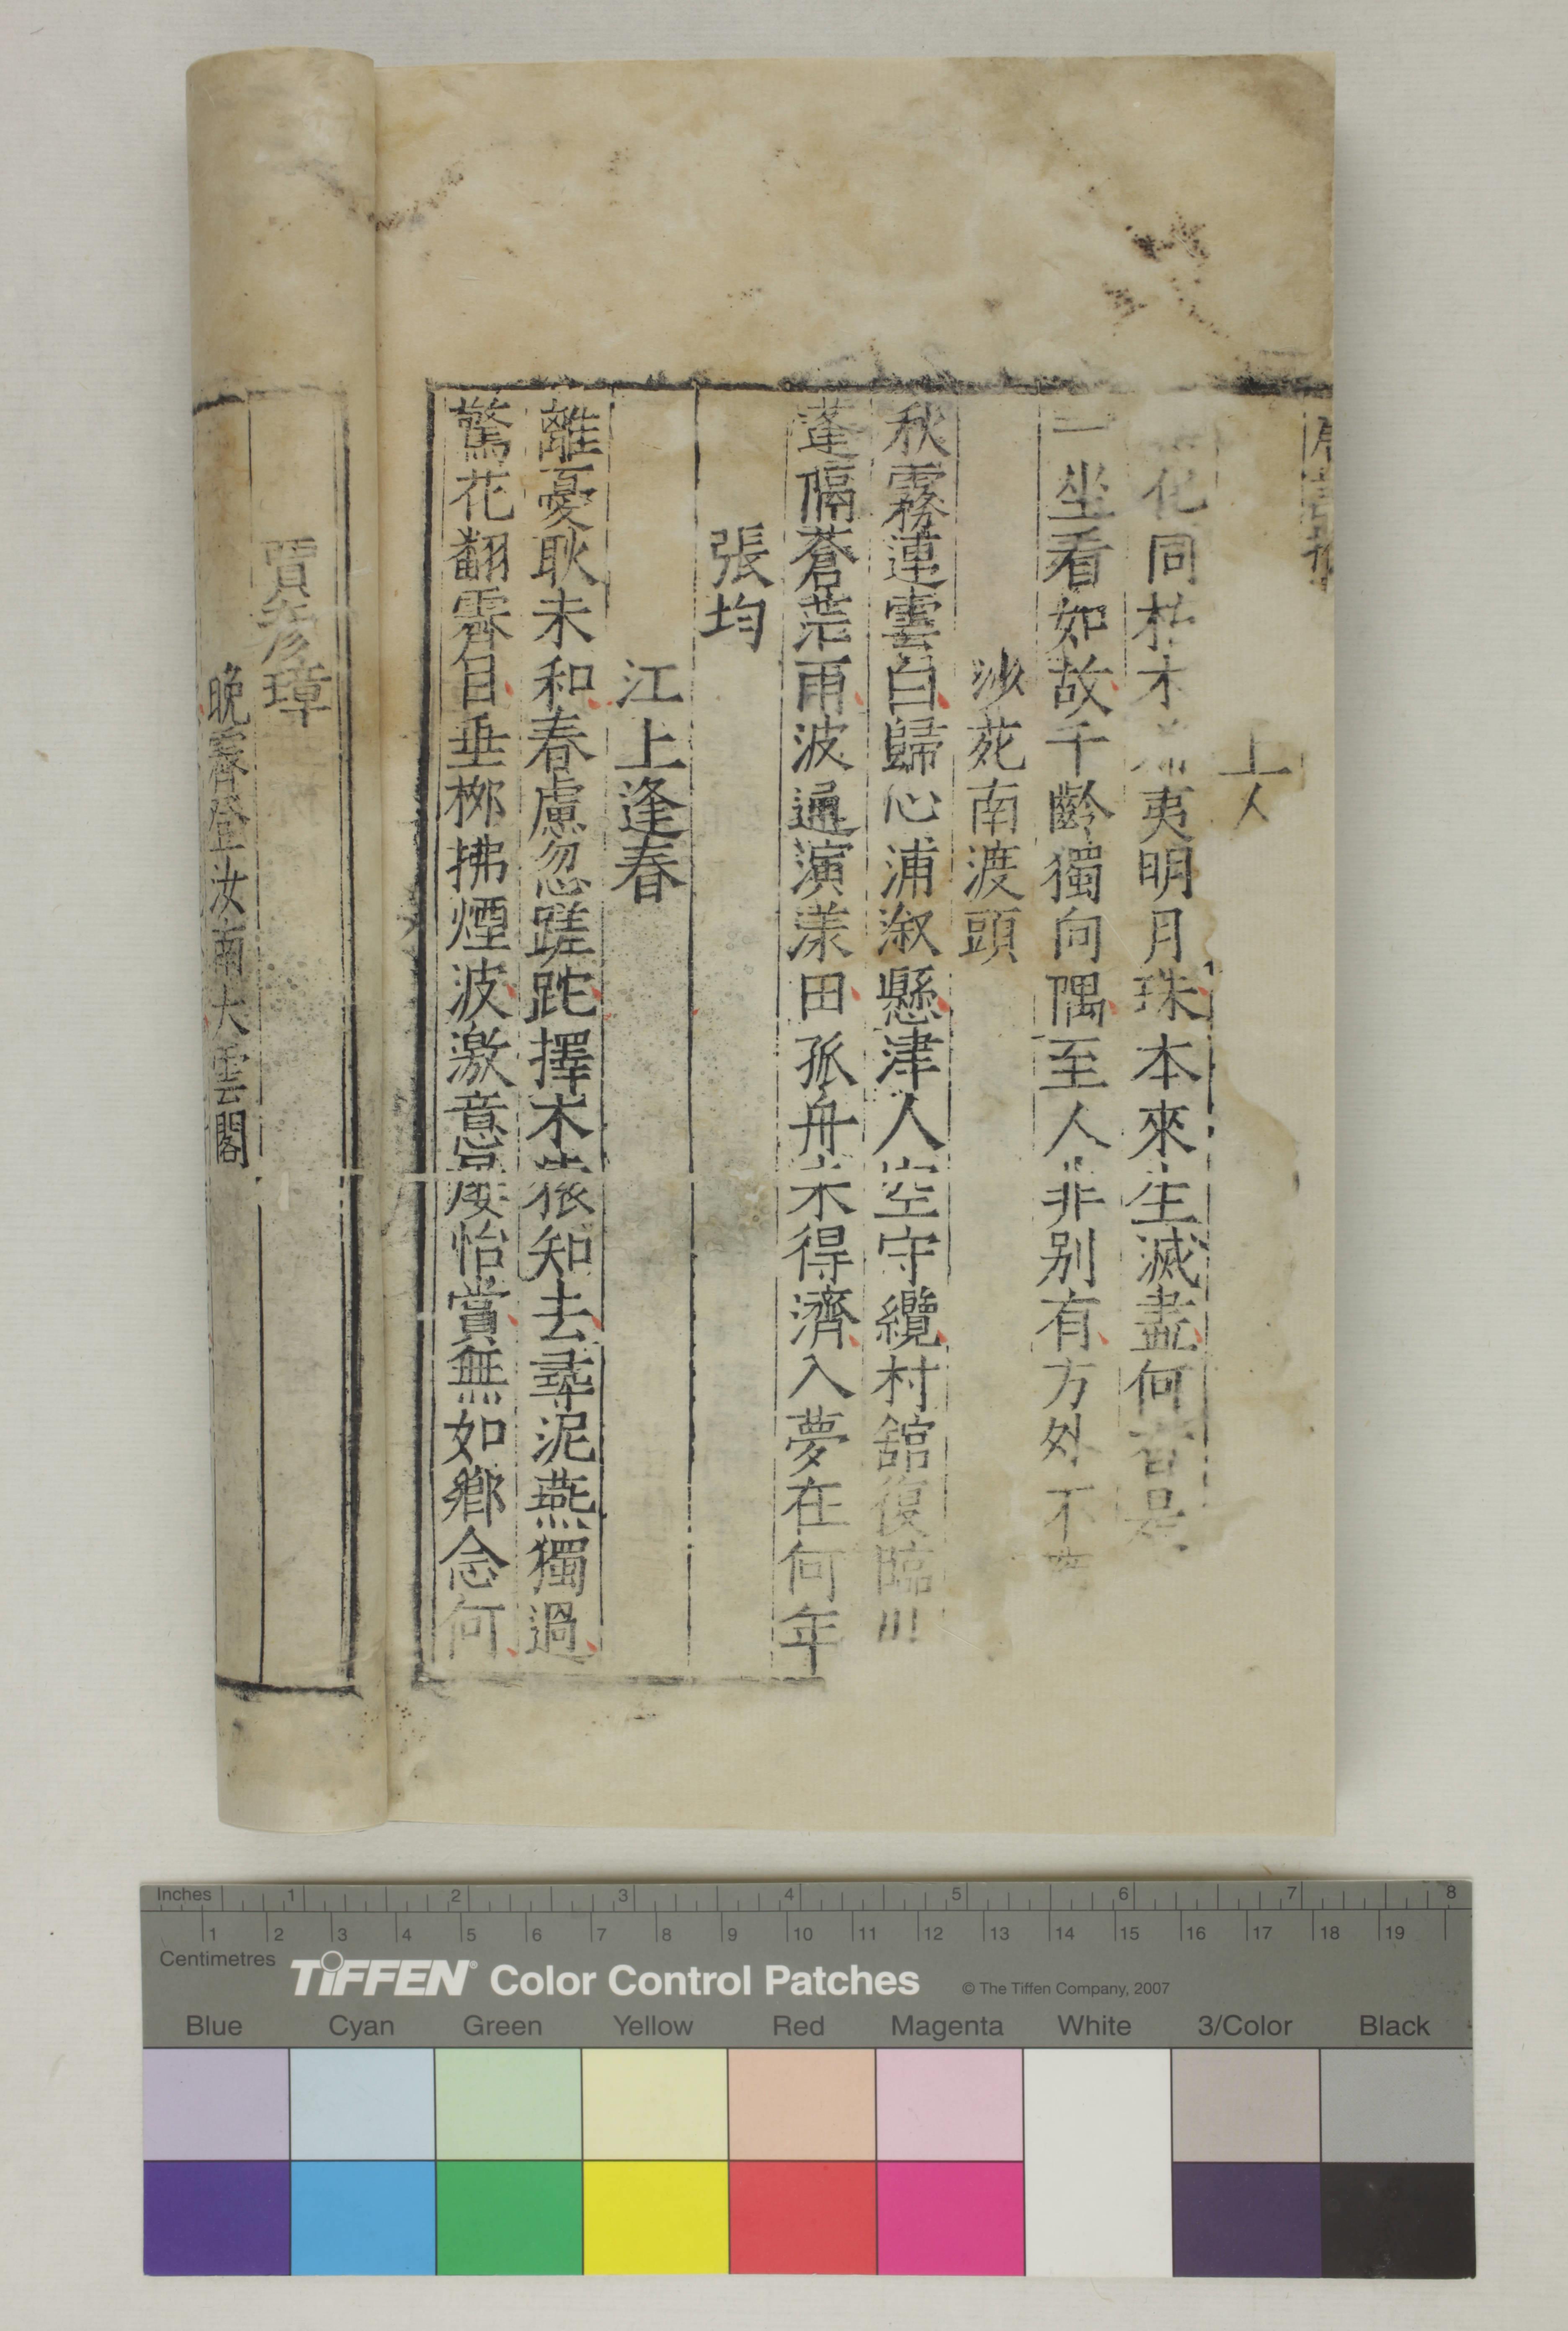 上人
化同枯木希夷明月珠本來生滅盡何者是
一坐看如故千齡獨向隅至人非别有方外不
沙苑南渡頭
秋霧連雲白歸心浦漵懸津人空守纜村舘復臨川
蓬隔蒼茫雨波通演漾田孤舟未得濟入夢在何年
張均
江上逢春
離憂耿未和春慮忽蹉跎擇木猿知去尋泥燕獨過
驚花翻霽日垂栁拂煙波激意屢怡賞無如鄉念何
賈彥璋
晚霽登汝南大雲閣
Inches 1 2 3 4 5 6 7 8
1 2 3 4 5 6 7 8 9 10 11 12 13 14 15 16 17 18 19
Centimetres
TIFFEN® Color Control Patches © The Tiffen Company, 2007
Blue Cyan Green Yellow Red Magenta White 3/Color Black